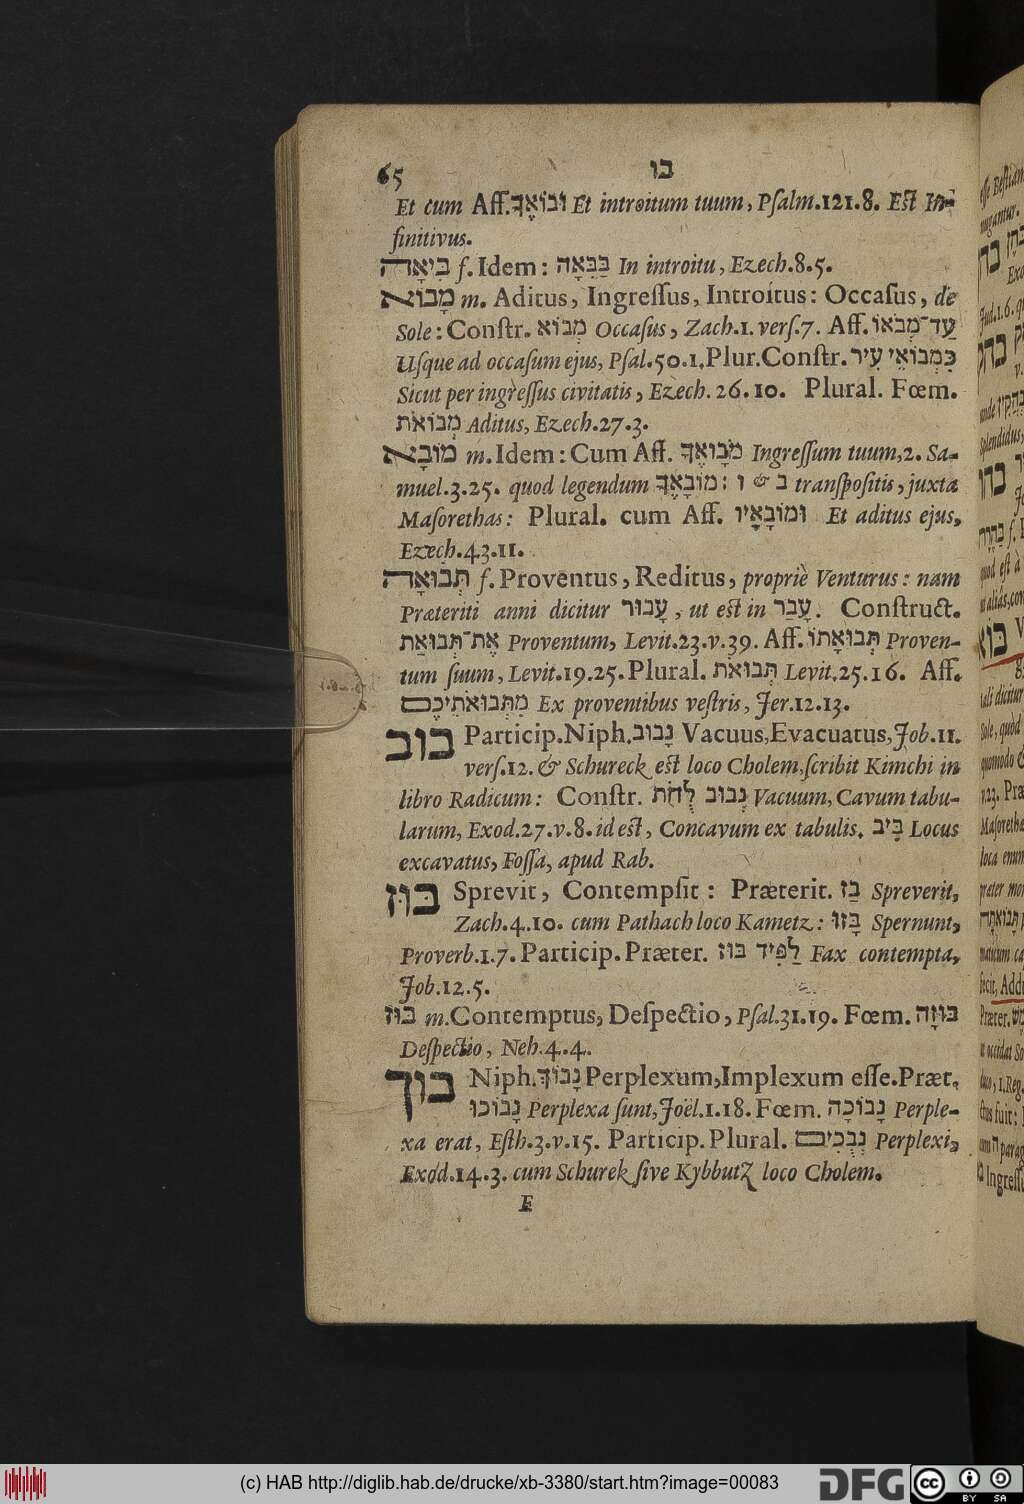 65
בו
Et cum Aff. וּבוֹאֶךָ Et introitum tuum, Pſalm.121.8. Eſt In-
finitivus.
בִּיאָה f. Idem: בַּבִּאָה In introitu, Ezech.8.5.
מָבוֹא m. Aditus, Ingreſſus, Introitus: Occaſus, de
Sole: Conſtr. מְבוֹא Occaſus, Zach.1. verſ.7. Aff. עַד־מְבֹאוֹ
Uſque ad occaſum ejus, Pſal.50.1. Plur. Conſtr. כִּמְבוֹאֵי עִיר
Sicut per ingreſſus civitatis, Ezech. 26.10. Plural. Fœm.
מְבוֹאֹת Aditus, Ezech.27.3.
מוֹבָא m. Idem: Cum Aff. מֹבָואֶךָ Ingreſſum tuum, 2. Sa-
muel.3.25. quod legendum מוֹבָאֶךָ: ו & ב tranſpoſitis, juxta
Maſorethas: Plural. cum Aff. וּמוֹבָאָיו Et aditus ejus,
Ezech.43.11.
תְּבוּאָה f. Proventus, Reditus, propriè Venturus: nam
Præteriti anni dicitur עָבוּר, ut eſt in עָבַר. Conſtruct.
אֶת־תְּבוּאַת Proventum, Levit.23.v.39. Aff. תְּבוּאָתוֹ Proven-
tum ſuum, Levit.19.25. Plural. תְּבוּאֹת Levit.25.16. Aff.
מִתְּבוּאֹתֵיכֶם Ex proventibus veſtris, Jer.12.13.
בוב Particip. Niph. נָבוּב Vacuus, Evacuatus, Job.11.
verſ.12. & Schureck eſt loco Cholem, ſcribit Kimchi in
libro Radicum: Conſtr. נְבוּב לֻחֹת Vacuum, Cavum tabu-
larum, Exod.27.v.8. id eſt, Concavum ex tabulis. בִּיב Locus
excavatus, Foſſa, apud Rab.
בוּז Sprevit, Contempſit: Præterit. בַּז Spreverit,
Zach.4.10. cum Pathach loco Kametz: בָּזוּ Spernunt,
Proverb.1.7. Particip. Præter. לַפִּיד בּוּז Fax contempta,
Job.12.5.
בּוּז m. Contemptus, Deſpectio, Pſal.31.19. Fœm. בּוּזָה
Deſpectio, Neh.4.4.
בוך Niph. נָבוֹךְ Perplexum, Implexum eſſe. Præt.
נָבוֹכוּ Perplexa ſunt, Joël.1.18. Fœm. נָבוֹכָה Perple-
xa erat, Eſth.3.v.15. Particip. Plural. נְבֻכִים Perplexi,
Exod.14.3. cum Schurek ſive Kybbutz loco Cholem.
E
(c) HAB http://diglib.hab.de/drucke/xb-3380/start.htm?image=00083
DFG
cc BY SA